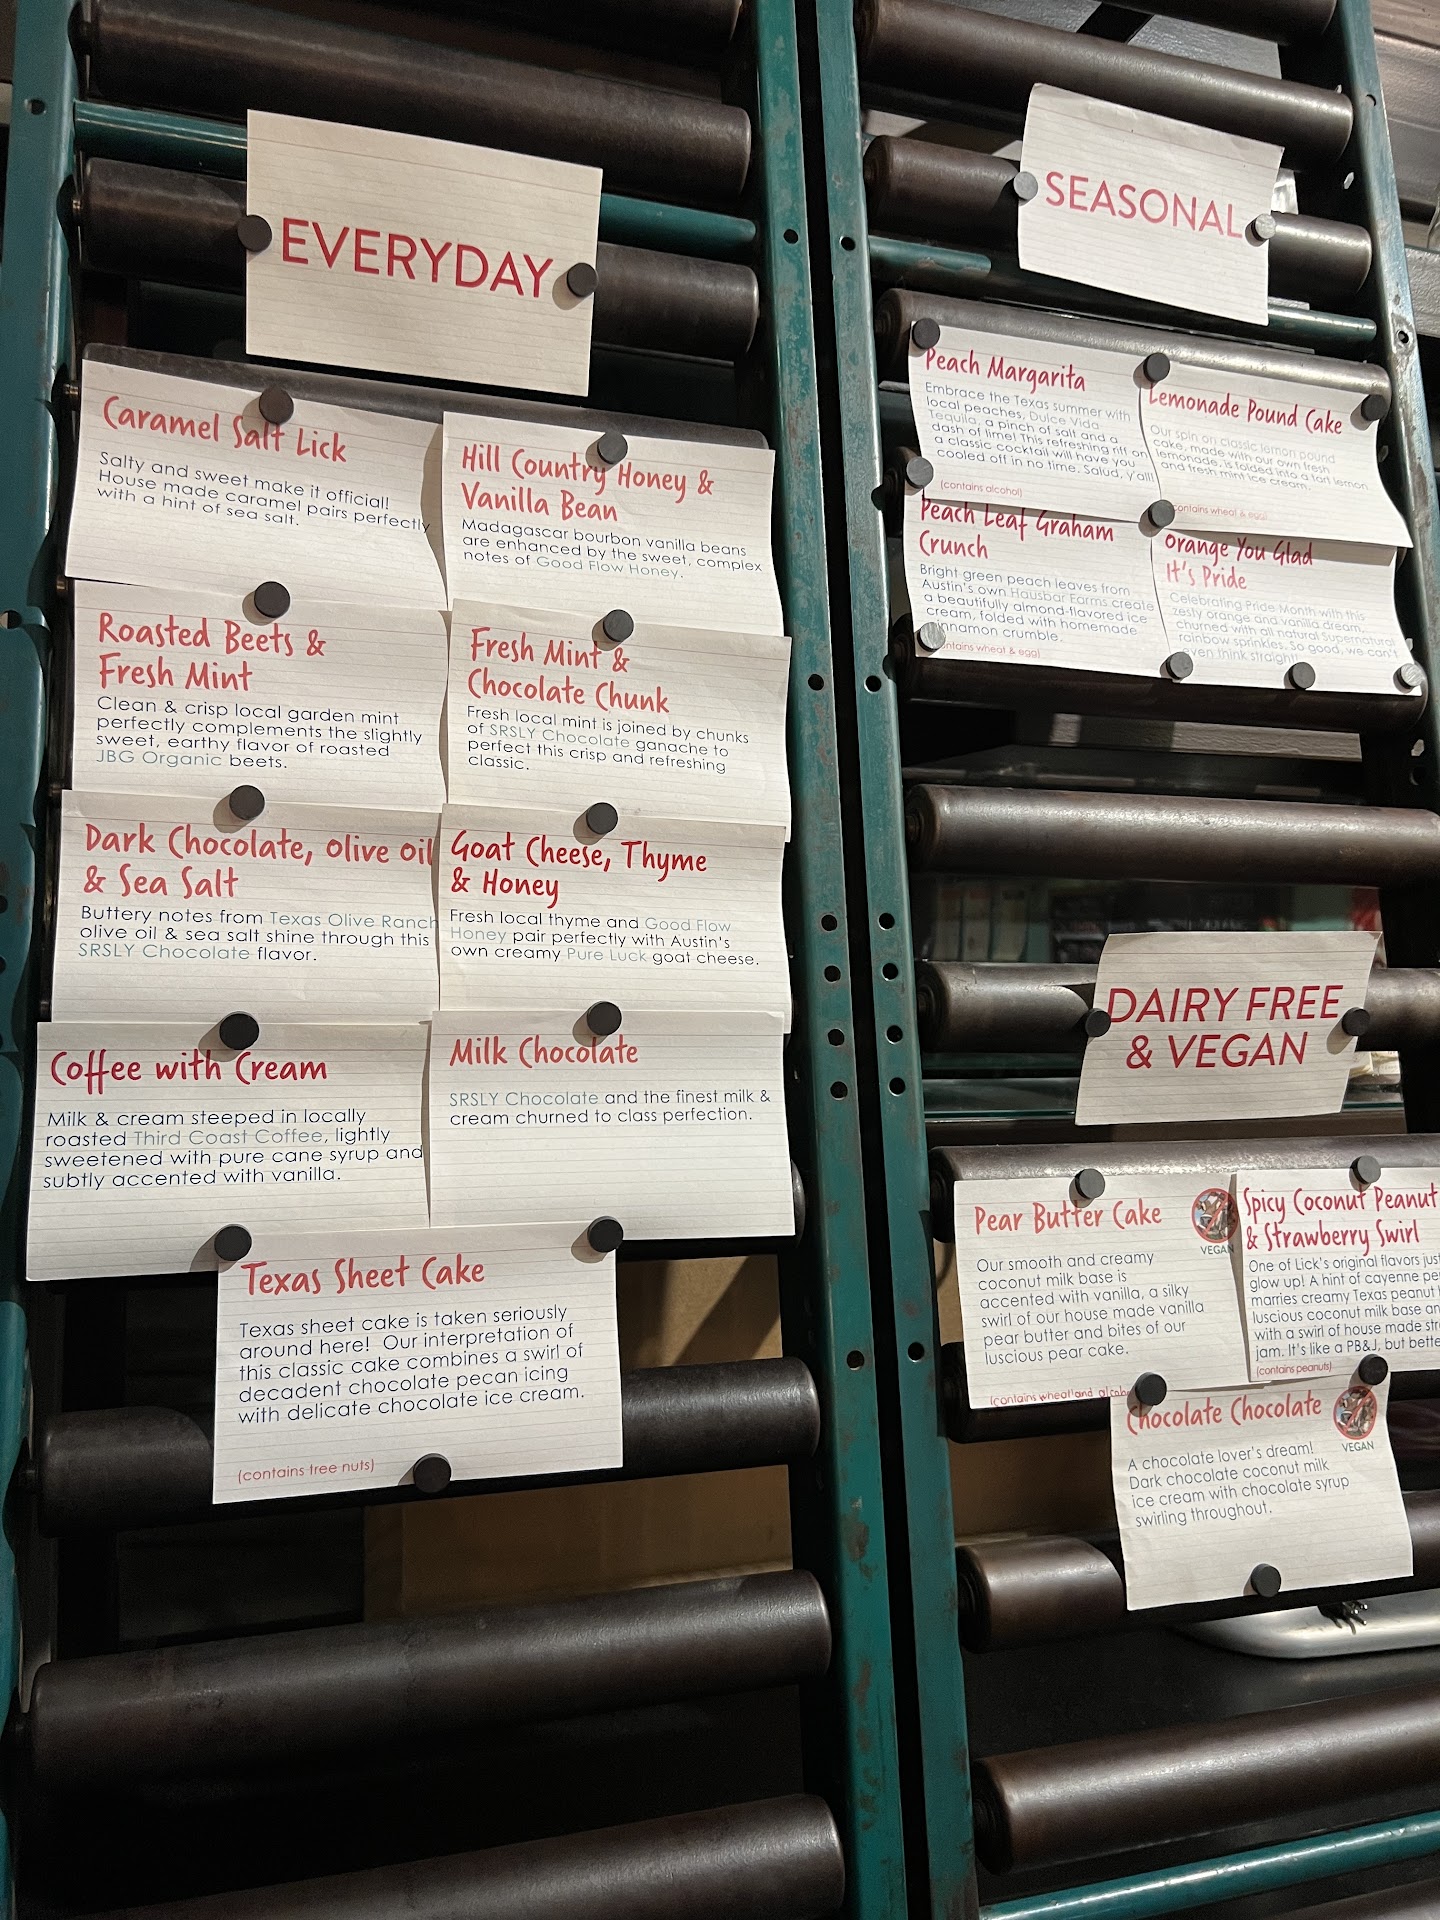 EVERYDAY
Caramel Salt Lick
Salty and sweet make it official!
House made caramel pairs perfectly
with a hint of sea salt.
Hill Country Honey &
Vanilla Bean
Madagascar bourbon vanilla beans
are enhanced by the sweet, complex
notes of Good Flow Honey.
Roasted Beets &
Fresh Mint
Clean & crisp local garden mint
perfectly complements the slightly
sweet, earthy flavor of roasted
JBG Organic beets.
Fresh Mint &
Chocolate Chunk
Fresh local mint is joined by chunks
of SRSLY Chocolate ganache to
perfect this crisp and refreshing
classic.
Dark Chocolate, Olive Oil
& Sea Salt
Buttery notes from Texas Olive Ranch
olive oil & sea salt shine through this
SRSLY Chocolate flavor.
Goat Cheese, Thyme
& Honey
Fresh local thyme and Good Flow
Honey pair perfectly with Austin's
own creamy Pure Luck goat cheese.
Coffee with Cream
Milk & cream steeped in locally
roasted Third Coast Coffee, lightly
sweetened with pure cane syrup and
subtly accented with vanilla.
Milk Chocolate
SRSLY Chocolate and the finest milk &
cream churned to class perfection.
Texas Sheet Cake
Texas sheet cake is taken seriously
around here! Our interpretation of
this classic cake combines a swirl of
decadent chocolate pecan icing
with delicate chocolate ice cream.
(contains tree nuts)
SEASONAL
Peach Margarita
Embrace the Texas summer with
local peaches, Dulce Vida
Tequila, a pinch of salt and a
dash of lime! This refreshing riff on
a classic cocktail will have you
cooled off in no time. Salud, y'all!
(contains alcohol)
Lemonade Pound Cake
Our spin on classic lemon pound
cake, made with our own fresh
lemonade, is folded into a tart lemon
and fresh mint ice cream.
contains wheat & egg)
Peach Leaf Graham
Crunch
Bright green peach leaves from
Austin's own Hausbar Farms create
a beautifully almond-flavored ice
cream, folded with homemade
cinnamon crumble.
contains wheat & egg)
Orange You Glad
It's Pride
Celebrating Pride Month with this
zesty orange and vanilla dream,
churned with all natural Supernatural
rainbow sprinkles. So good, we can't
even think straight!
DAIRY FREE
& VEGAN
Pear Butter Cake
VEGAN
Our smooth and creamy
coconut milk base is
accented with vanilla, a silky
swirl of our house made vanilla
pear butter and bites of our
luscious pear cake.
(contains wheat and
Spicy Coconut Peanut
& Strawberry Swirl
One of Lick's original flavors just
glow up! A hint of cayenne
marries creamy Texas peanut
luscious coconut milk base
with a swirl of house made
jam. It's like a PB&J, but
(contains peanuts)
Chocolate Chocolate
VEGAN
A chocolate lover's dream!
Dark chocolate coconut milk
ice cream with chocolate syrup
swirling throughout.